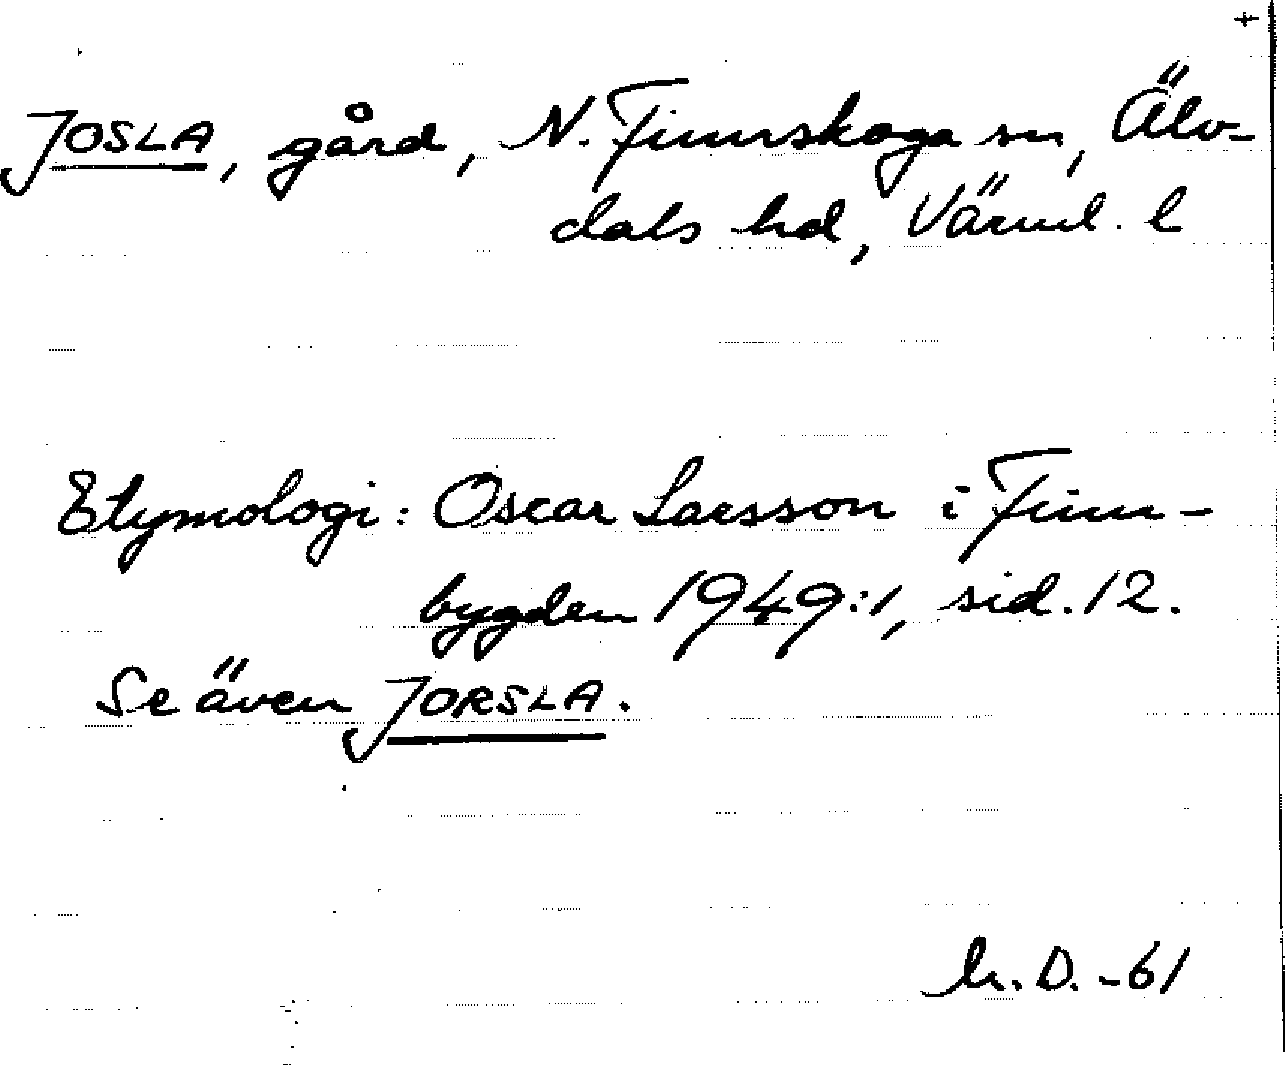 +
JOSLA, gård, N. Finnskoga sn, Älv-
dals hd, Värml. l
Etymologi: Oscar Larsson i Finn-
bygden 1949:1, sid. 12.
Se även JORSLA.
D. -61